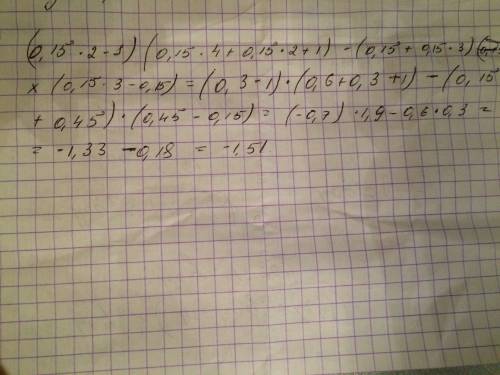 (0,15·2-1) (0,15·4+0,15·2+1) -(0,15+0,15·3)
x (0,15·3-0,15)=(0,3-1)·(0,6+0,3+1)-(0,15
+0,45)·(0,45-0,15)= (-0,7)·1,9-0,6·0,3=
= -1,33 -0,18 = -1,51